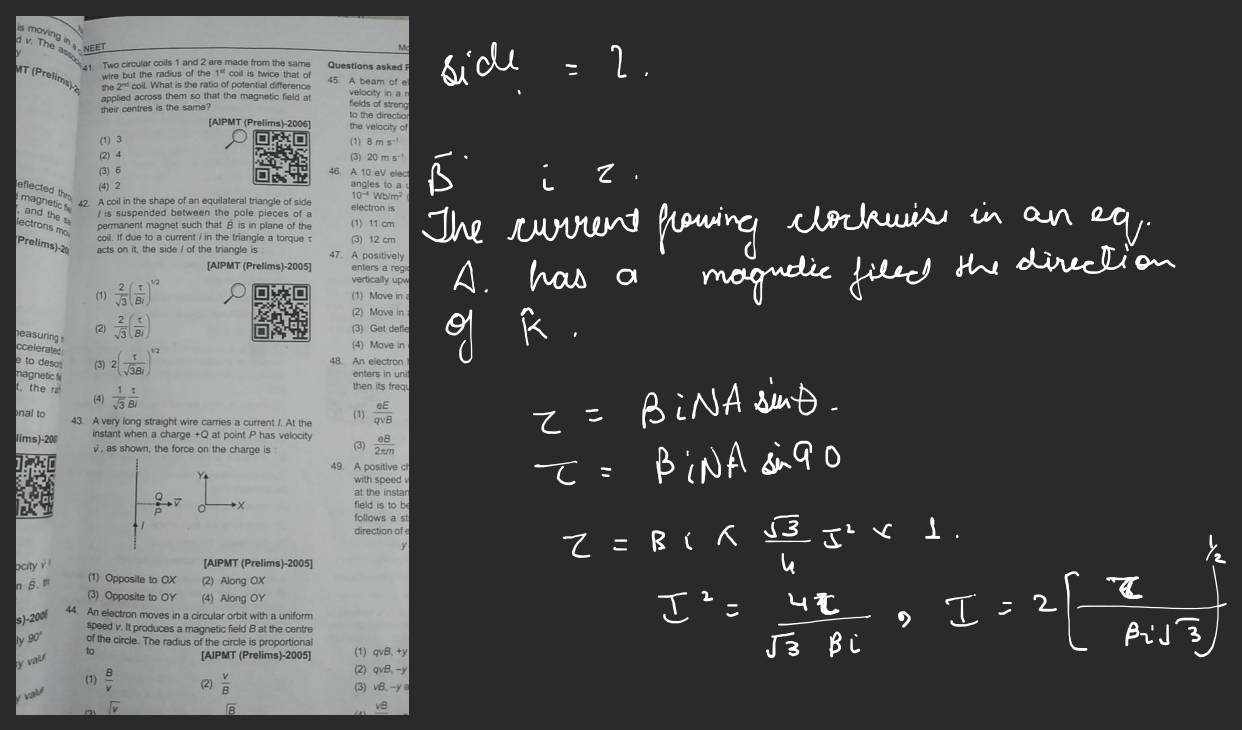 is moving in a
d v. The assoc
MT (Prelims)-20
eflected thro
magnetic fie
, and the se
lectrons mo
Prelims)-20
neasuring
ccelerated
e to desc
nagnetic fi
t, the ra
onal to
lims)-200
ocity v
n B.
s)-2006
ly 90°
y value
y value
NEET
41. Two circular coils 1 and 2 are made from the same
wire but the radius of the 1st coil is twice that of
the 2nd coil. What is the ratio of potential difference
applied across them so that the magnetic field at
their centres is the same?
[AIPMT (Prelims)-2006]
(1) 3
(2) 4
(3) 6
(4) 2
42. A coil in the shape of an equilateral triangle of side
l is suspended between the pole pieces of a
permanent magnet such that B⃗ is in plane of the
coil. If due to a current i in the triangle a torque τ
acts on it, the side l of the triangle is :
[AIPMT (Prelims)-2005]
(1) 2/√3 (τ/Bi)^1/2
(2) 2/√3 (τ/Bi)
(3) 2(τ/√3Bi)^1/2
(4) 1/√3 τ/Bi
43. A very long straight wire carries a current I. At the
instant when a charge +Q at point P has velocity
v⃗, as shown, the force on the charge is :
Y
Q
v⃗
P
O
X
I
[AIPMT (Prelims)-2005]
(1) Opposite to OX (2) Along OX
(3) Opposite to OY (4) Along OY
44. An electron moves in a circular orbit with a uniform
speed v. It produces a magnetic field B at the centre
of the circle. The radius of the circle is proportional
to [AIPMT (Prelims)-2005]
(1) B/v (2) v/B
Mo
Questions asked P
45. A beam of el
velocity in a m
fields of streng
to the direction
the velocity of
(1) 8 m s⁻¹
(3) 20 m s⁻¹
46. A 10 eV elect
angles to a u
10⁻⁴ Wb/m²
electron is
(1) 11 cm
(3) 12 cm
47. A positively
enters a regi
vertically upw
(1) Move in a
(2) Move in
(3) Get defle
(4) Move in
48. An electron
enters in unif
then its frequ
(1) eE/qvB
(3) eB/2πm
49. A positive ch
with speed v
at the instan
field is to be
follows a st
direction of e
y
(1) qvB, +y
(2) qvB, –y
(3) vB, –y a
vB
side = l.
B⃗ i τ.
The current flowing clockwise in an eq.
Δ. has a magnetic filed the direction
of k̂.
τ = BiNA sinθ.
τ = BiNA sin90
τ = Bi × √3/4 I² × 1.
I² = 4τ/√3 Bi , I = 2[τ/Bi√3]^1/2